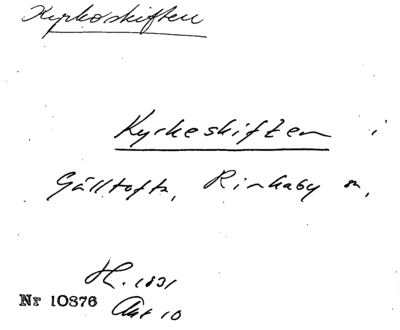 Kyrkoskiften
Kyrkeskiften i
Gälltofta, Rinkaby sn,
H. 1831
Nr 10876 Akt 10